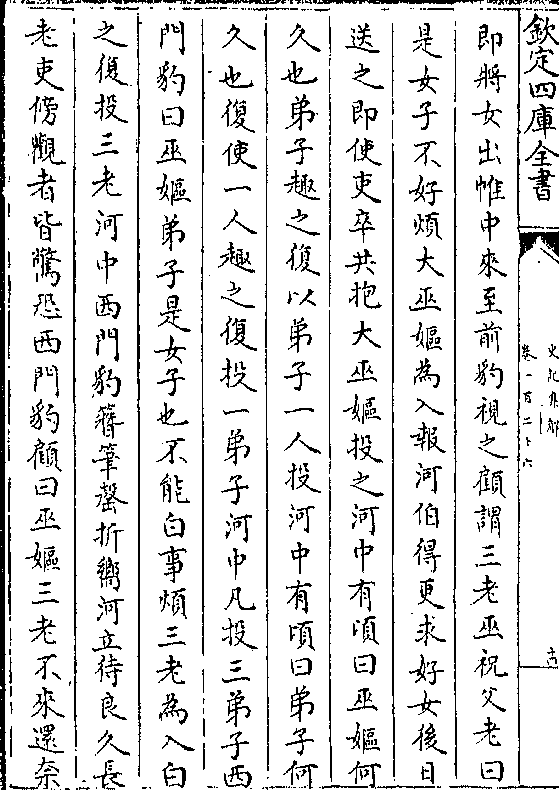 欽定四庫全書
史記集解
卷一百二十六
十四
即將女出帷中來至前豹視之顧謂三老巫祝父老曰
是女子不好煩大巫嫗為入報河伯得更求好女後日
送之即使吏卒共抱大巫嫗投之河中有頃曰巫嫗何
久也弟子趣之復以弟子一人投河中有頃曰弟子何
久也復使一人趣之復投一弟子河中凡投三弟子西
門豹曰巫嫗弟子是女子也不能白事煩三老為入白
之復投三老河中西門豹簪筆磬折嚮河立待良久長
老吏傍觀者皆驚恐西門豹顧曰巫嫗三老不來還奈